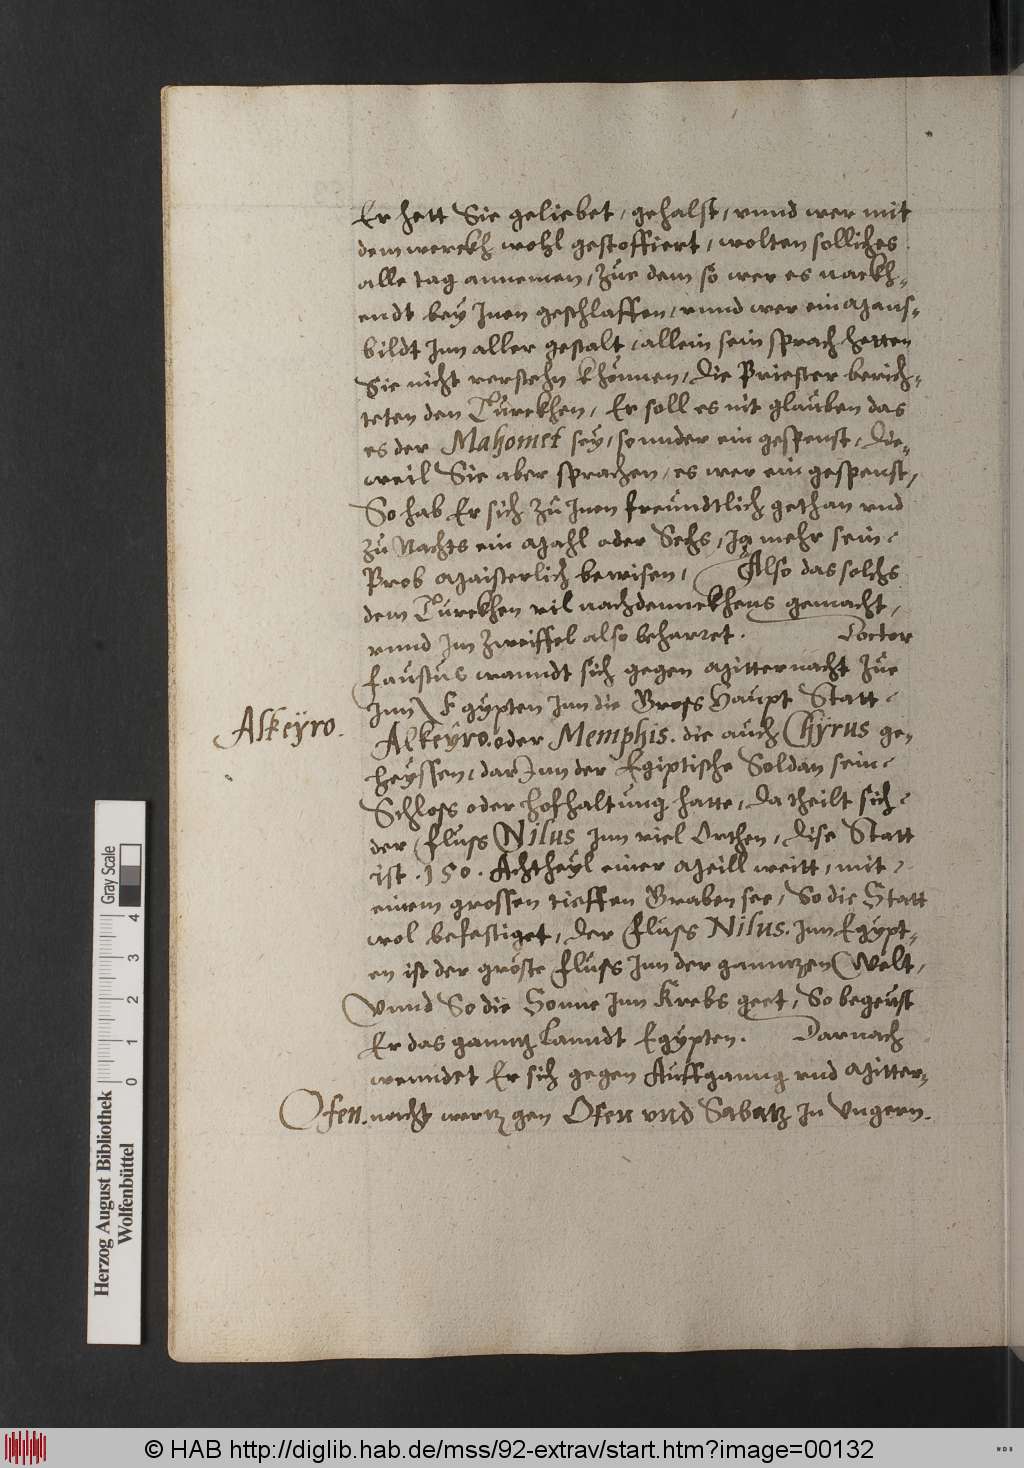 Er hett Sie geliebet, gehalst, vnnd wer mit
dem werckh wohl gestoffiert, wolten solliches
alle tag annemen, zue dem so wer es nackh„
endt bey Inen geschlaffen, vnnd wer ein Mans„
bildt Inn aller gestalt, allein sein sprach hetten
Sie nicht verstehn khönnen, die Priester berich„
teten den Türckhen, Er soll es nit glauben das
es der Mahomet sey, sonnder ein gespenst, die„
weil Sie aber sprachen, es wer ein gespenst,
So hab Er sich zu Inen freundtlich gethan vnd
zu Nachts ein Mahl oder Sechs, Ja mehr sein
Prob Maisterlich bewisen, Also das solchs
dem Türckhen vil nachdennckhens gemacht,
vnnd Im zweiffel also beharret. Doctor
Faustus wanndt sich gegen Mitternacht zue
Inn Egypten Inn die Gross Haupt Statt
Alkeyro.
Alkeyro. oder Memphis. die auch Chyrus ge„
heyssen, darInn der Egiptische Soldan sein
Schloss oder hofhaltung hatte, da theilt sich
der fluss Nilus Inn viel Orthen, dise Statt
ist .150. Achtheyl einer Meill weitt, mit
einem grossen tieffen Graben see, So die Statt
wol befestiget, der fluss Nilus. Inn Egypt„
en ist der gröste fluss Inn der ganntzen Welt,
Vnnd So die Sonne Inn Krebs geet, So begeust
Er das ganntz Lanndt Egypten. Darnach
wenndet Er sich gegen Auffganng vnd Mitter„
Ofen.
nacht wertz gen Ofen vnd Sabatz In Vngern.
Herzog August Bibliothek
Wolfenbüttel
Gray Scale
0 1 2 3 4
© HAB http://diglib.hab.de/mss/92-extrav/start.htm?image=00132